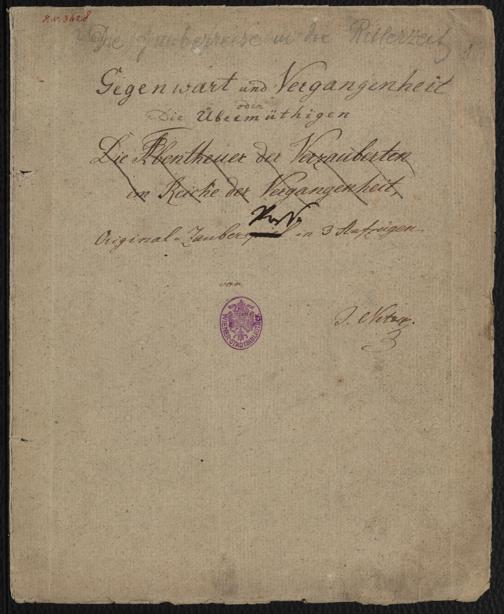 I.N. 3428
Die Zauberreise in die Ritterzeit
Gegenwart und Vergangenheit
oder
Die Übermüthigen
Die Abentheuer der Verzauberten
im Reiche der Vergangenheit,
Original-Zauber in 3 Aufzügen
von
J. Nestroy.